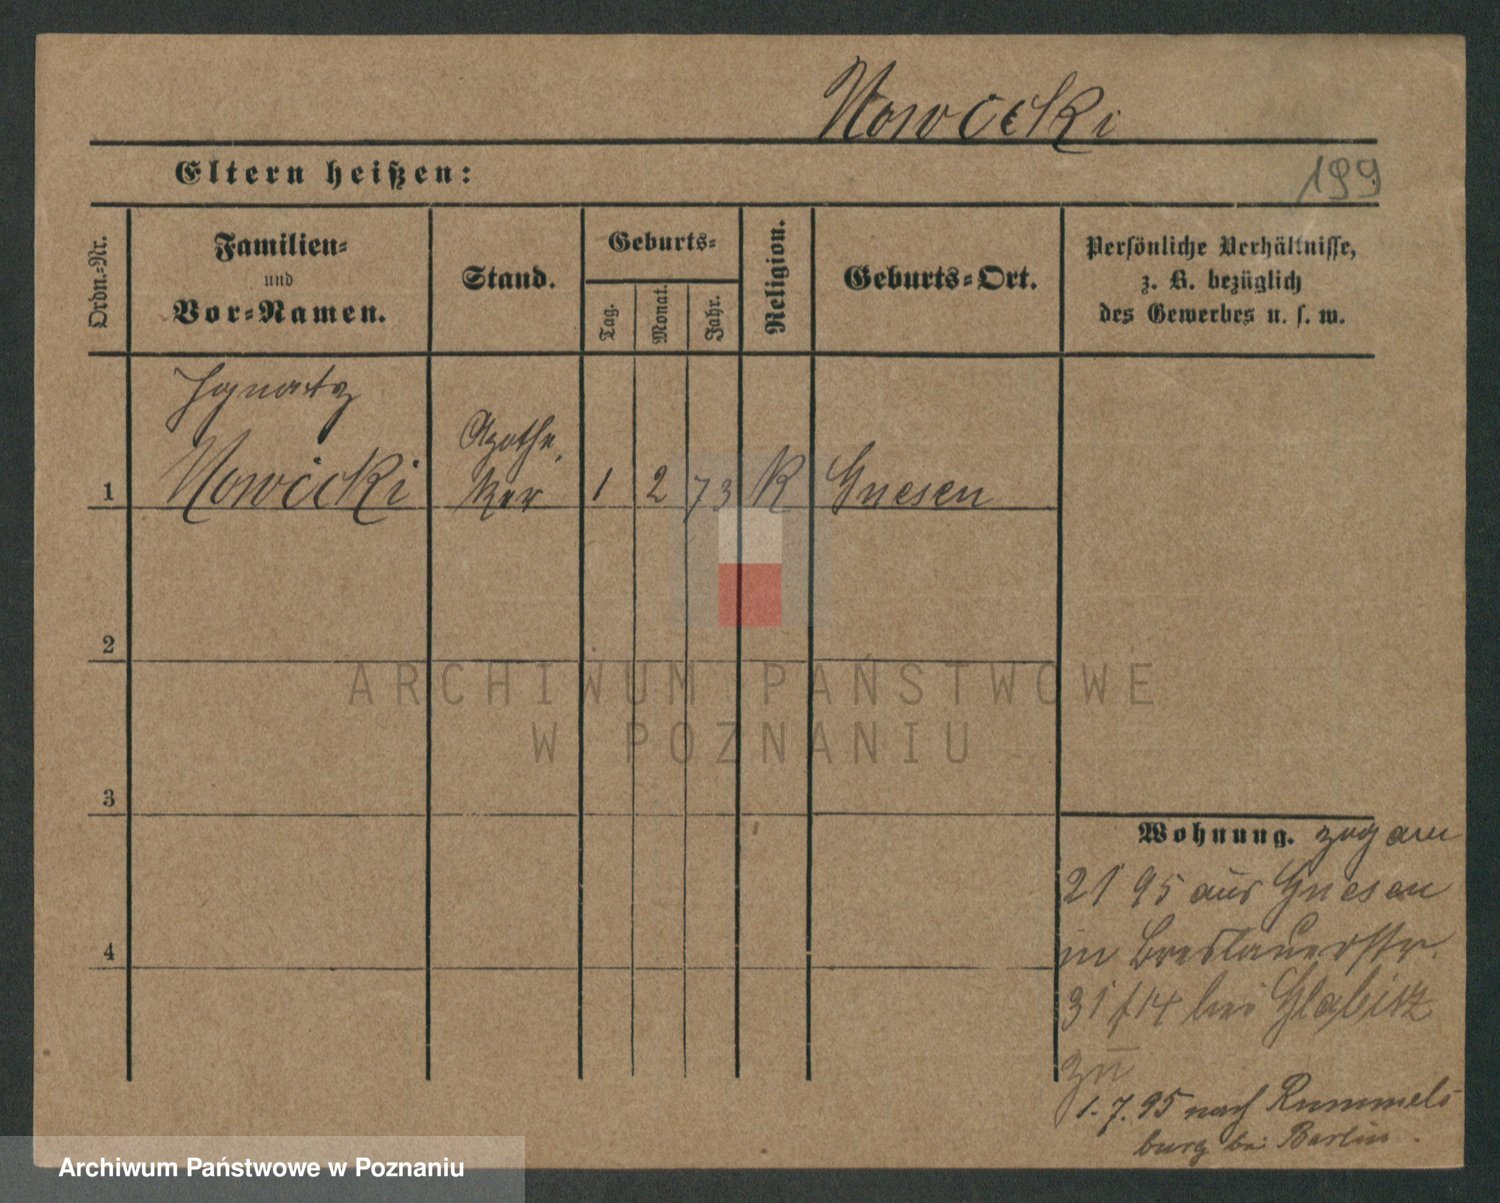 Nowicki
Eltern heißen:
199
Ordn.-Nr.
Familien-
und
Vor-Namen.
Stand.
Geburts-
Tag.
Monat.
Jahr.
Religion.
Geburts-Ort.
Persönliche Verhältnisse,
z. B. bezüglich
des Gewerbes u. s. w.
Ignatz
Apothe-
1 Nowicki ker 1 2 73 K Gnesen
2
ARCHIWUM PAŃSTWOWE
W POZNANIU
3
Wohnung. zog am
21 95 aus Gnesen
4
in Breslauerstr.
31 bei Glabisz
zu
1.7.95 nach Rummels-
burg bei Berlin.
Archiwum Państwowe w Poznaniu